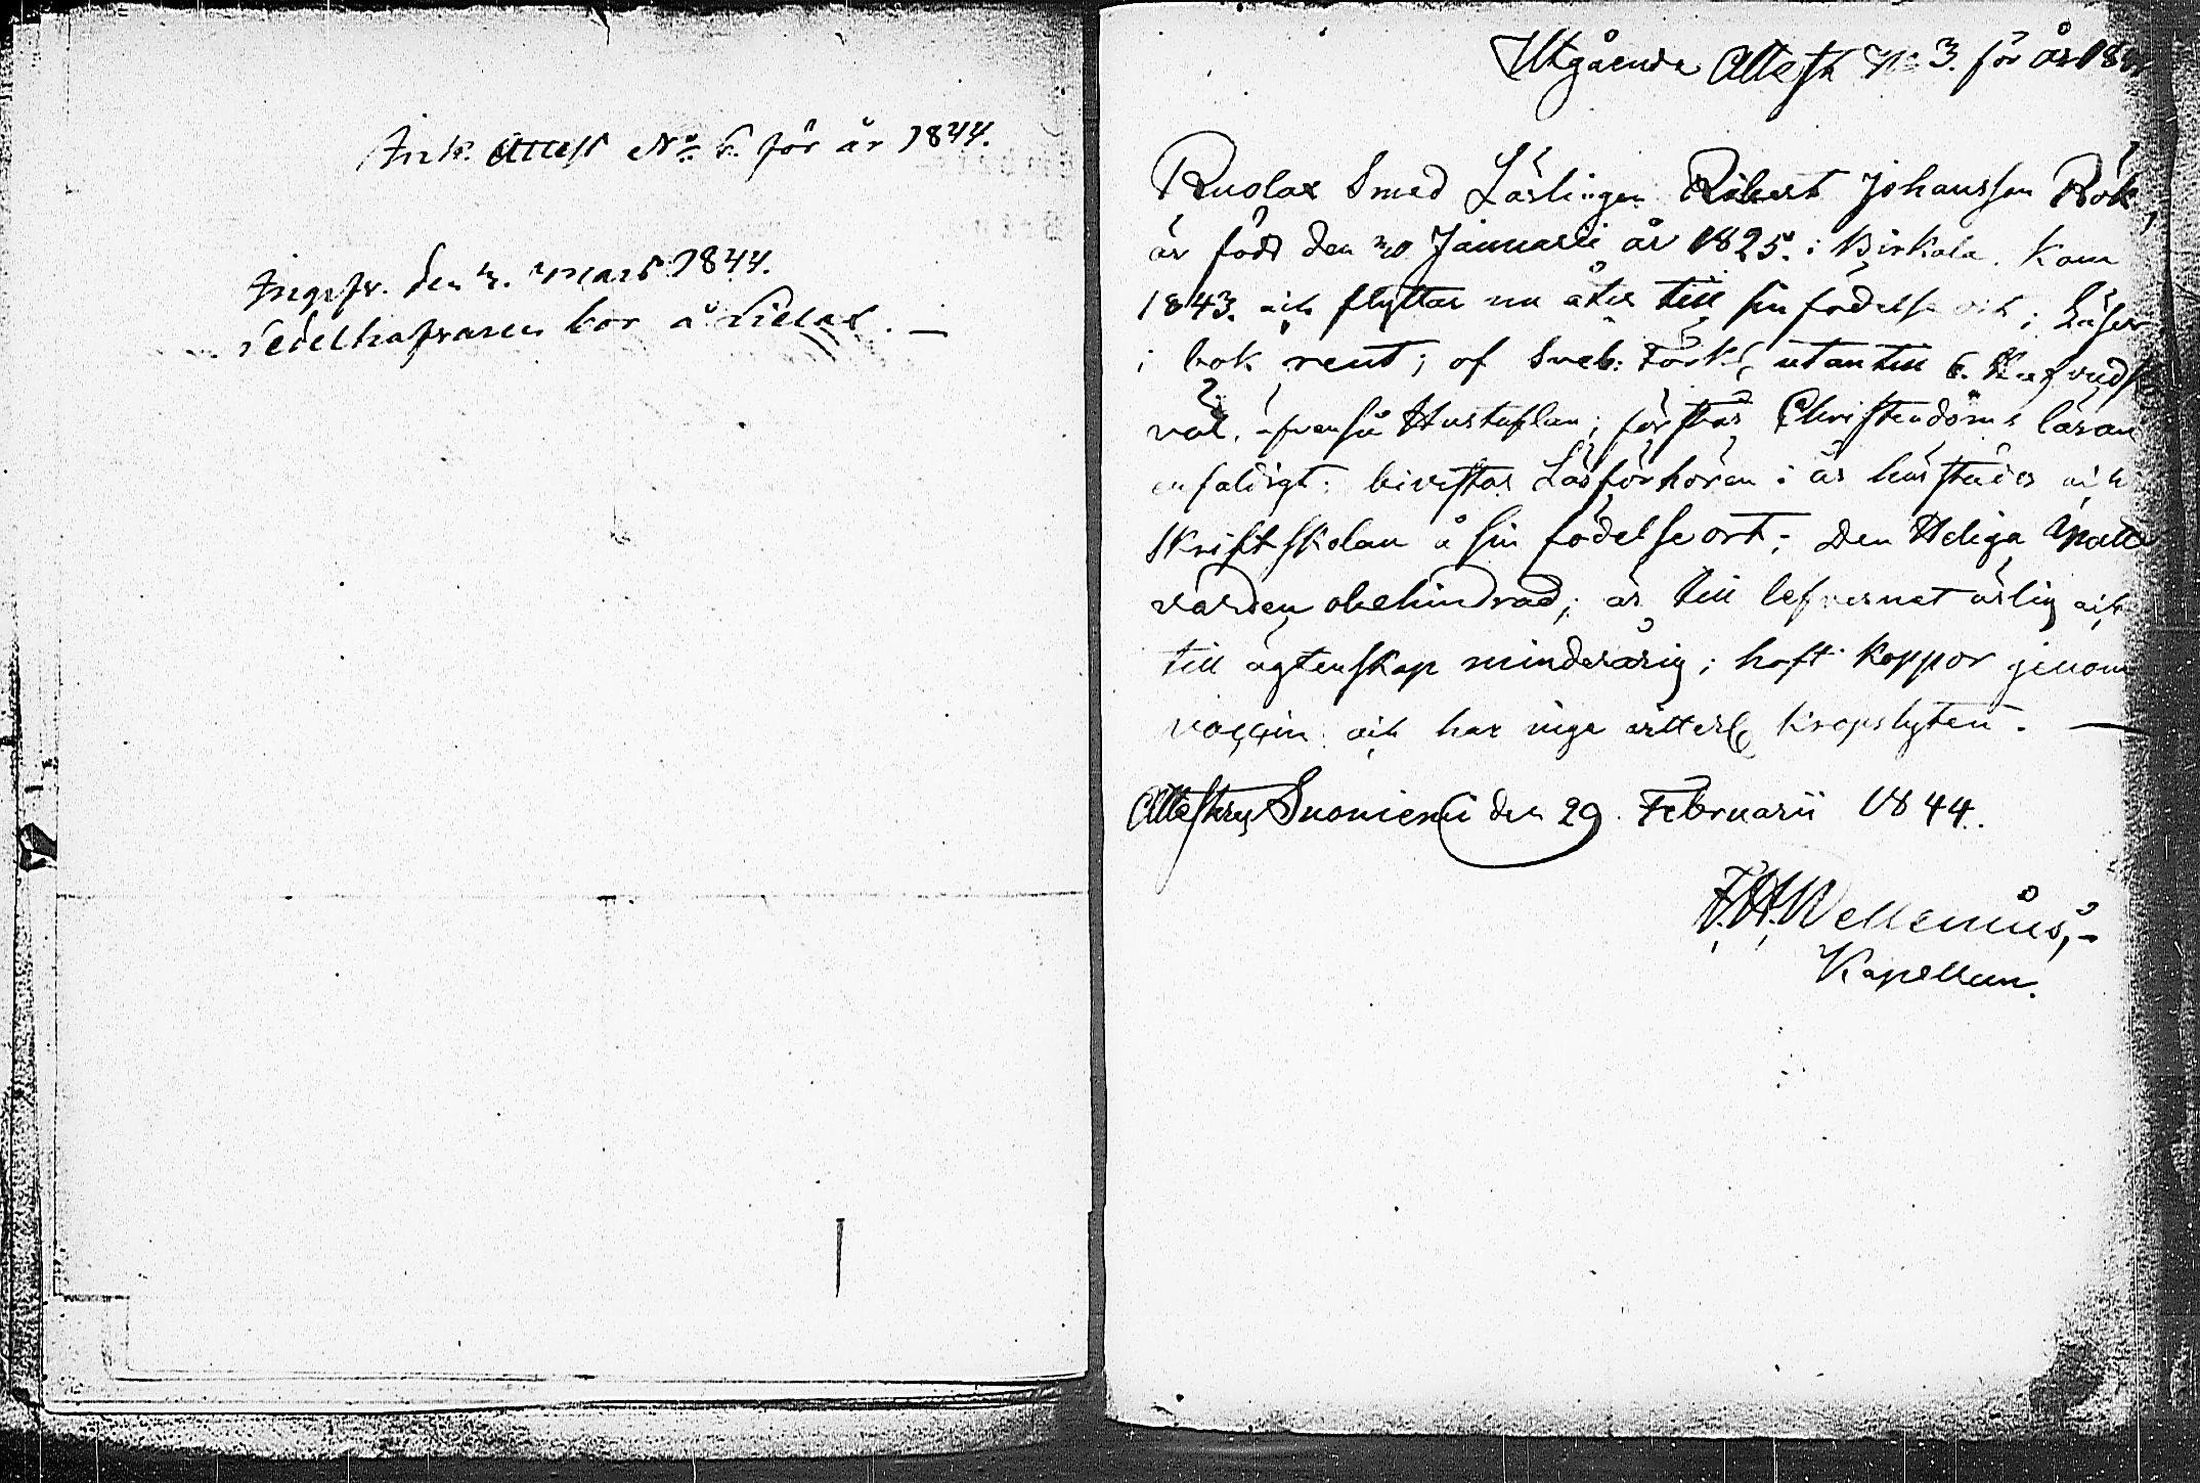 Ink. Attest No 6. för år 1844.
Ingifv. den 3. Mars 1844.
Sedelhafvaren bor å Lielax. —
Utgående Attest No 3. för år 184
Ruolax Smed Lärlingen Robert Johansson Rök,
är född den 20 Januarii år 1825. i Birkala. Kom
1843. och flyttar nu åter till sin födelse ort; Läser
i bok rent; af Sveb. Förkl. utantill 6. Hufvudst
väl, äfvenså Hustaflan; förstår Christendoms läran
enfaldigt; bivistat Läsförhören i år härstädes och
Skriftskolan å sin födelseort; Den Heliga Natt
varden obehindrad; är till lefvernet ärlig och
till ägtenskap minderårig; haft koppor genom
vaccin och har inga kropslyten. —
Suoniemi den 29. Februarii 1844.
F.H. Wellenius,-
Kapellan.